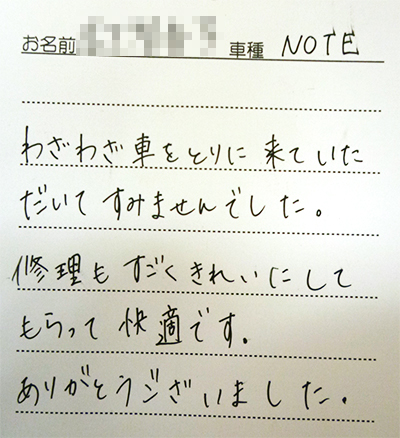 お名前 車種 NOTE
わざわざ車をとりに来ていた
だいてすみませんでした。
修理もすごくきれいにして
もらって快適です。
ありがとうございました。